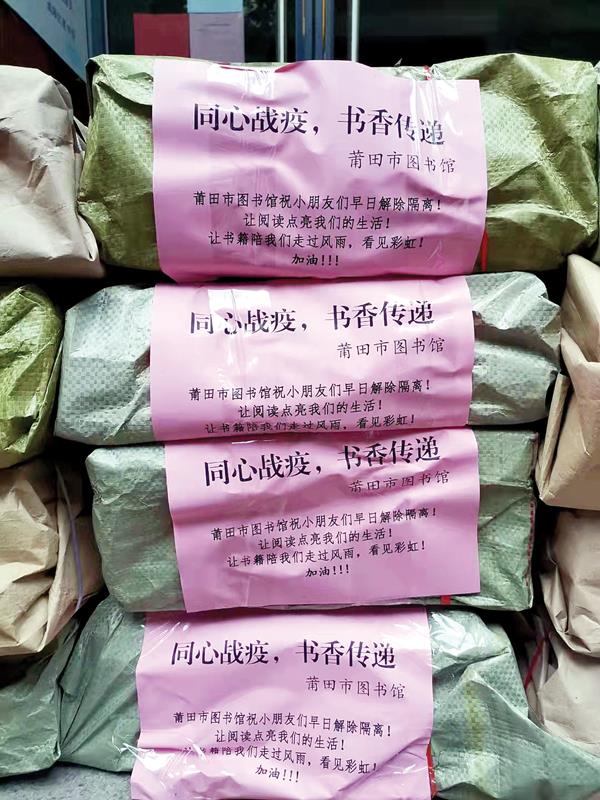 同心战疫，书香传递
莆田市图书馆
莆田市图书馆祝小朋友们早日解除隔离！
让阅读点亮我们的生活！
让书籍陪我们走过风雨，看见彩虹！
加油!!!
同心战疫，书香传递
莆田市图书馆
莆田市图书馆祝小朋友们早日解除隔离！
让阅读点亮我们的生活！
让书籍陪我们走过风雨，看见彩虹！
同心战疫，书香传递
莆田市图书馆
莆田市图书馆祝小朋友们早日解除隔离！
让阅读点亮我们的生活！
让书籍陪我们走过风雨，看见彩虹！
加油!!!
同心战疫，书香传递
莆田市图书馆
莆田市图书馆祝小朋友们早日解除隔离！
让阅读点亮我们的生活！
让书籍陪我们走过风雨，看见彩虹！
加油!!!